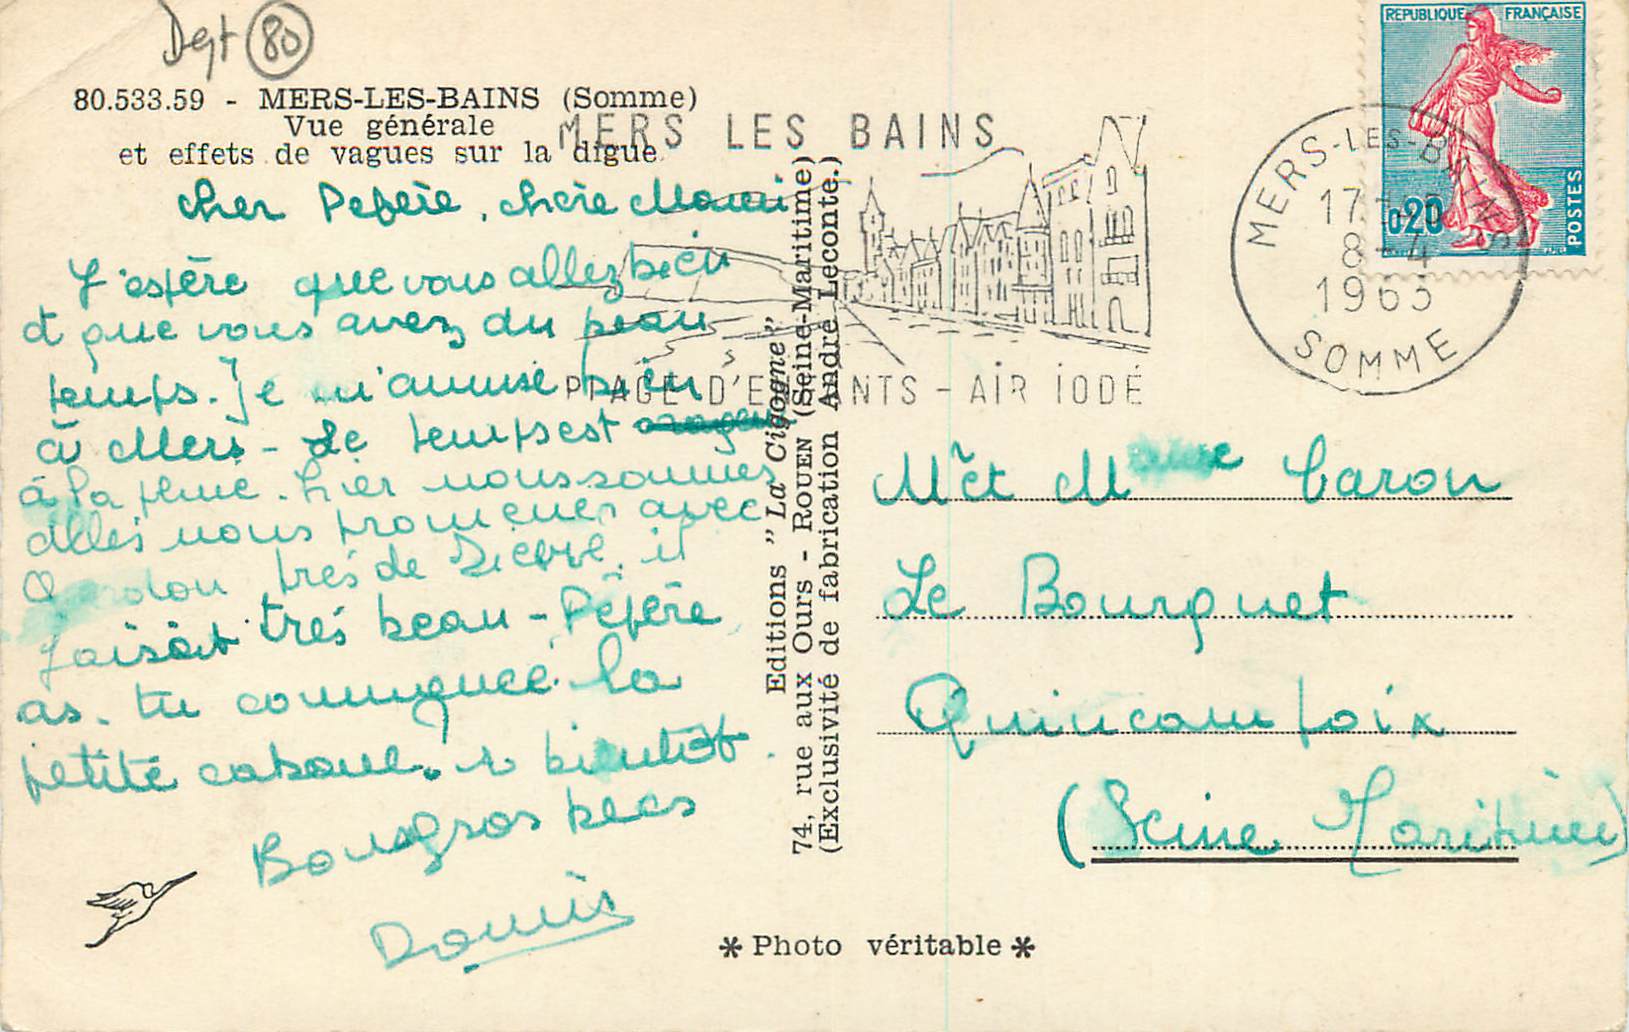 Dept 80
80.533.59 - MERS-LES-BAINS (Somme)
Vue générale
et effets de vagues sur la digue
MERS LES BAINS
PLAGE D'ENFANTS - AIR IODÉ
REPUBLIQUE FRANÇAISE
0,20
POSTES
MERS-LES-BAINS
17
8-4
1963
SOMME
cher Pépère, chère Mami
J'espère que vous allez bien
et que vous avez du beau
temps. Je m'amuse bien
à Mers - Le temps est
à la pluie. hier nous sommes
allés nous promener avec
très de Dieppe, il
faisait très beau - Pépère
as-tu commencé la
petite cabane. à bientôt.
Bons gros becs
Editions "La Cigogne"
74, rue aux Ours - ROUEN (Seine-Maritime)
(Exclusivité de fabrication André Leconte.)
Mr et Mme Caron
Le Bourguet
Quincampoix
(Seine Maritime)
* Photo véritable *